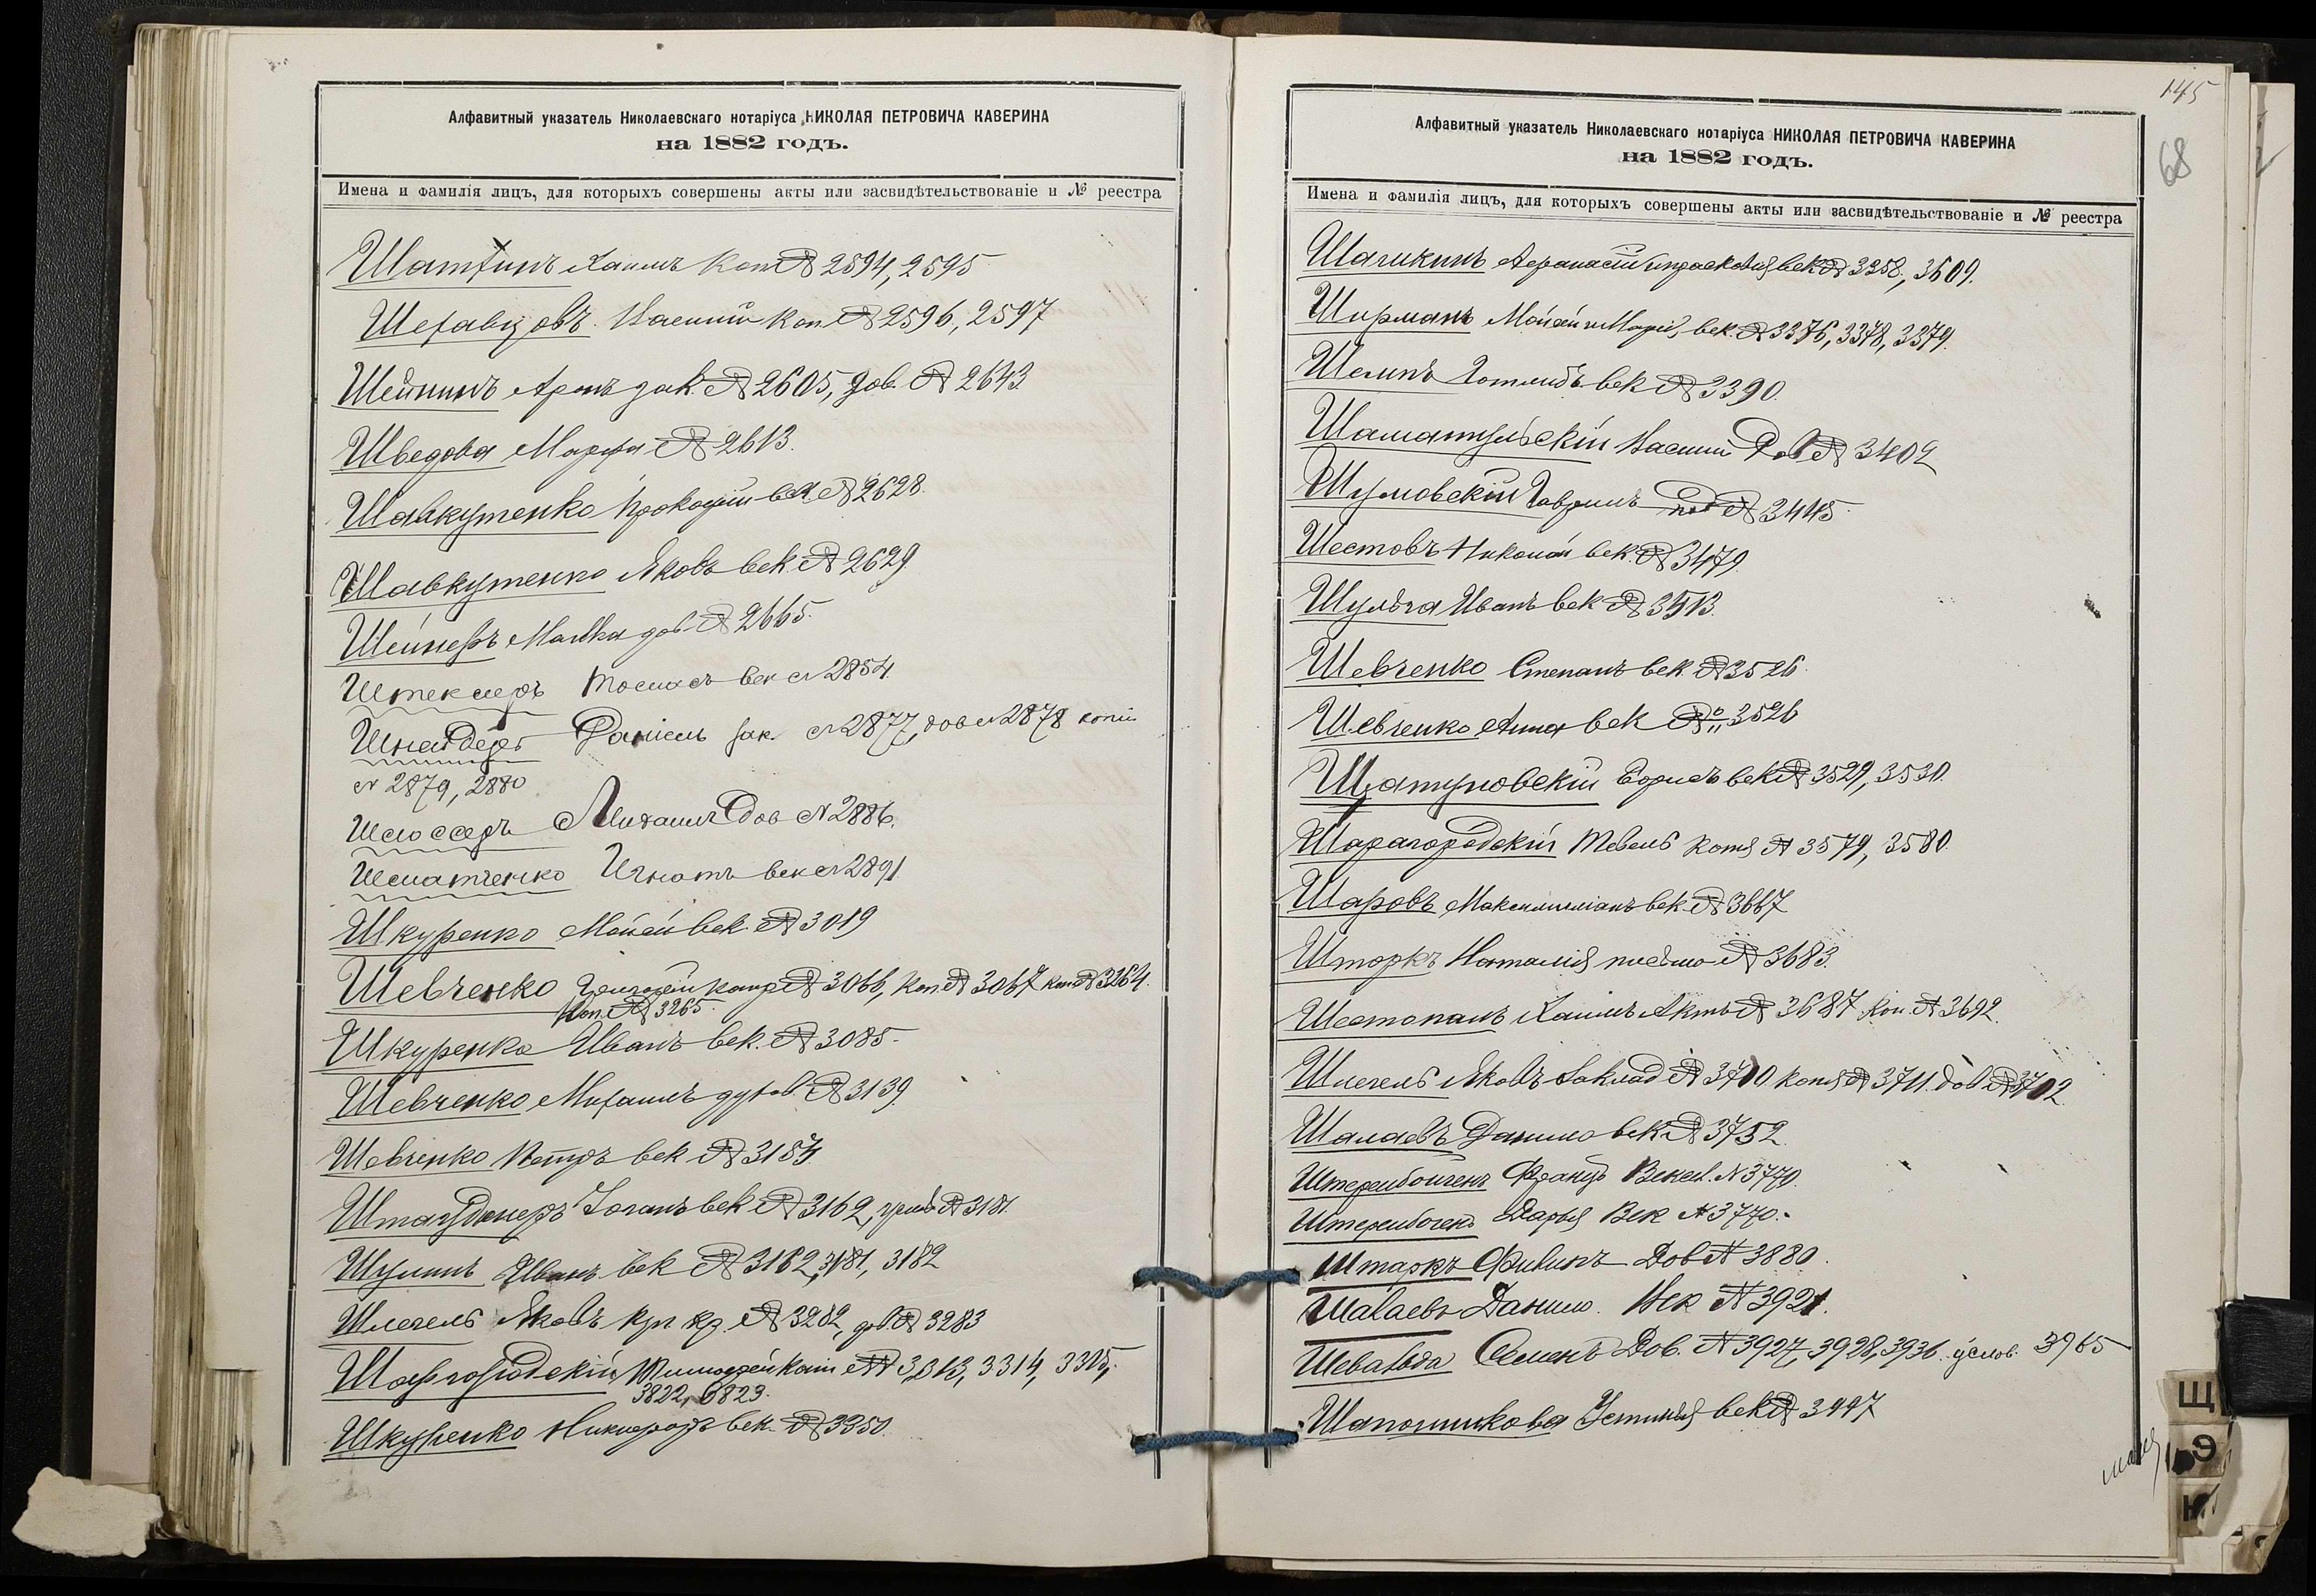 Алфавитный указатель Николаевскаго нотаріуса НИКОЛАЯ ПЕТРОВИЧА КАВЕРИНА
на 1882 годъ.
Имена и фамилія лицъ, для которыхъ совершены акты или засвидѣтельствованіе и № реестра
Хаимъ Коп № 2594, 2595
Василій Коп. № 2596, 2597
Шейнинъ Аронъ зак. № 2605, дов. № 2643
Шведова Марфа № 2613.
Шавкутенко Прокофій век № 2628.
Шавкутенко Яковъ век. № 2629.
Шейнеръ Малка дов. № 2665.
Штекмеръ век № 2854.
Шнайдеръ Даніель зак. № 2877, дов № 2878 копіи
№ 2879, 2880
Шлоссеръ Михаилъ Дов № 2886.
Шматченко Игнатъ век № 2891.
Шкуренко Мойсей век. № 3019
Шевченко № 3066, Коп. № 3067 Коп № 3264.
Коп. № 3265.
Шкуренко Иванъ век. № 3085.
Шевченко Михаилъ № 3139.
Шевченко Петръ век № 3154.
Іоганъ век № 3162, № 3181.
Шулинъ Иванъ век № 3162, 3181, 3182
Шлегель Яковъ № 3282, дов. № 3283
Шаргородскій Коп № 3313, 3314, 3315,
3822, 3823.
Шкуренко Никифоръ век. № 3350.
145
68
Алфавитный указатель Николаевскаго нотаріуса НИКОЛАЯ ПЕТРОВИЧА КАВЕРИНА
на 1882 годъ.
Имена и фамилія лицъ, для которыхъ совершены акты или засвидѣтельствованіе и № реестра
Шагикинъ Афанасій и Прасковія век № 3258, 3609.
Ширманъ Мойсей и Марія, век. № 3376, 3378, 3379.
Готлибъ век № 3390.
Шаматульскій Василій Дов № 3402
Шумовскій Гавріилъ № 3445.
Шестовъ Николай век. № 3479.
Шульга Иванъ век № 3513.
Шевченко Степанъ век. № 3526.
Шевченко Анна век № 3526
Шатуновскій Борисъ век № 3529, 3530.
Шарагородскій Тевель Копія № 3579, 3580.
Шаровъ Максимиліанъ век № 3667
Шторкъ Наталія письмо № 3683.
Шестопалъ Хаимъ Актъ № 3687 Коп. № 3692.
Шлегель Яковъ Заклад № 3710 копія № 3711. дов № 3702.
Шалаевъ Данило век № 3752.
Францъ Вексел. № 3770.
Дарья Век № 3770.
Штаркъ Филипъ Дов № 3880.
Шалаевъ Данило. Век № 3921.
Семенъ Дов. № 3927, 3928, 3936. услов. 3965
Шапошникова Устинья век № 3997
Щ
Э
Ю